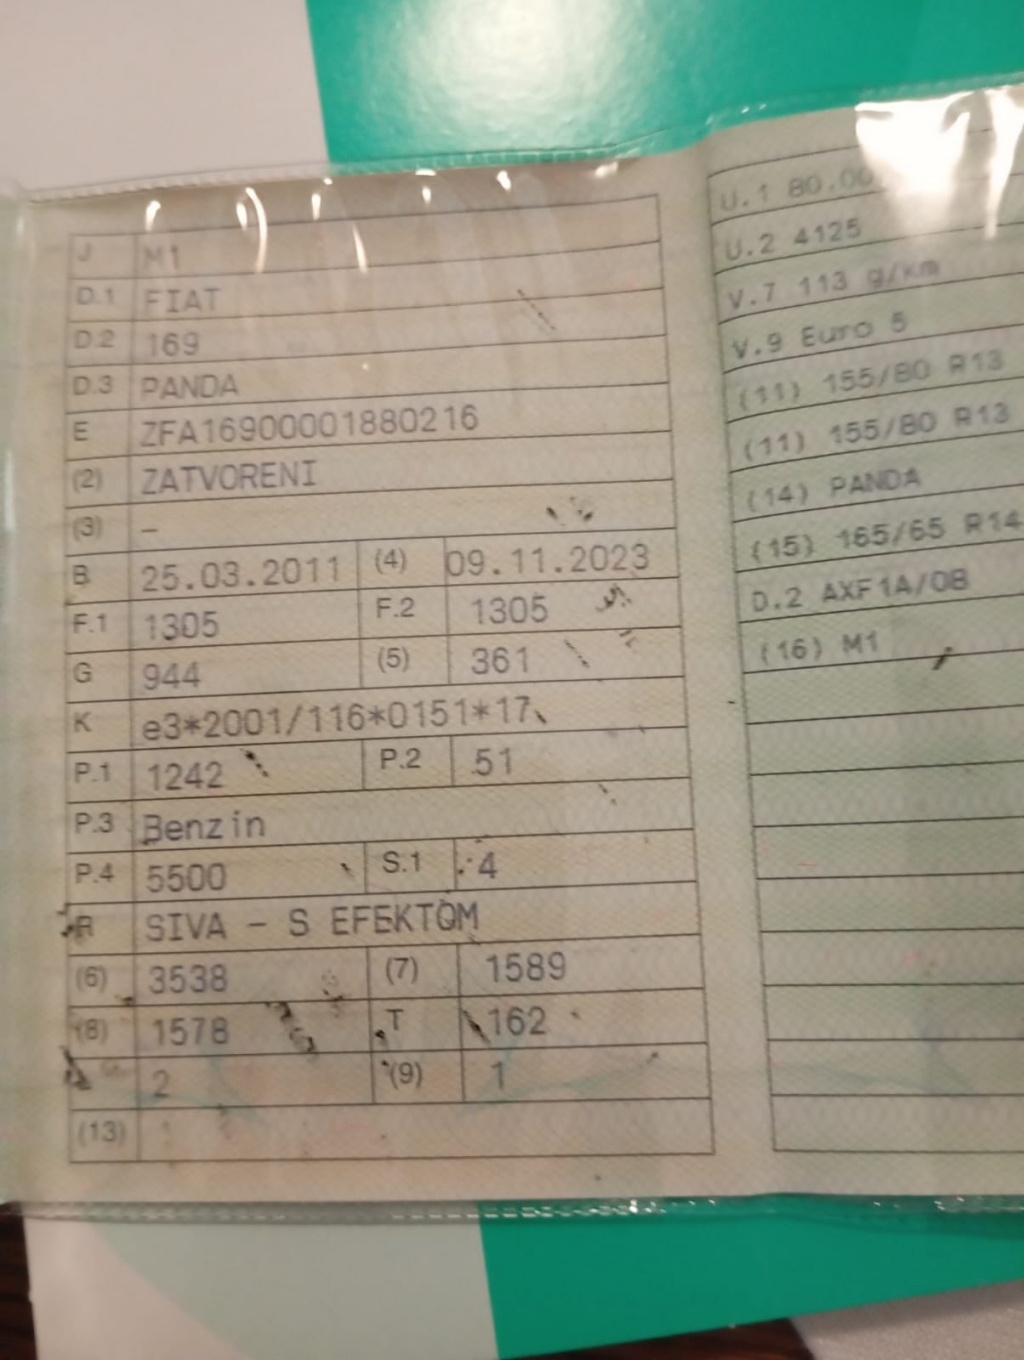 J M1
D.1 FIAT
D.2 169
D.3 PANDA
E ZFA16900001880216
(2) ZATVORENI
(3) –
B 25.03.2011 (4) 09.11.2023
F.1 1305 F.2 1305
G 944 (5) 361
K e3*2001/116*0151*17
P.1 1242 P.2 51
P.3 Benzin
P.4 5500 S.1 4
R SIVA – S EFEKTOM
(6) 3538 (7) 1589
(8) 1578 T 162
2 (9) 1
(13)
U.1 80.00
U.2 4125
V.7 113 g/km
V.9 Euro 5
(11) 155/80 R13
(11) 155/80 R13
(14) PANDA
(15) 165/65 R14
D.2 AXF1A/0B
(16) M1